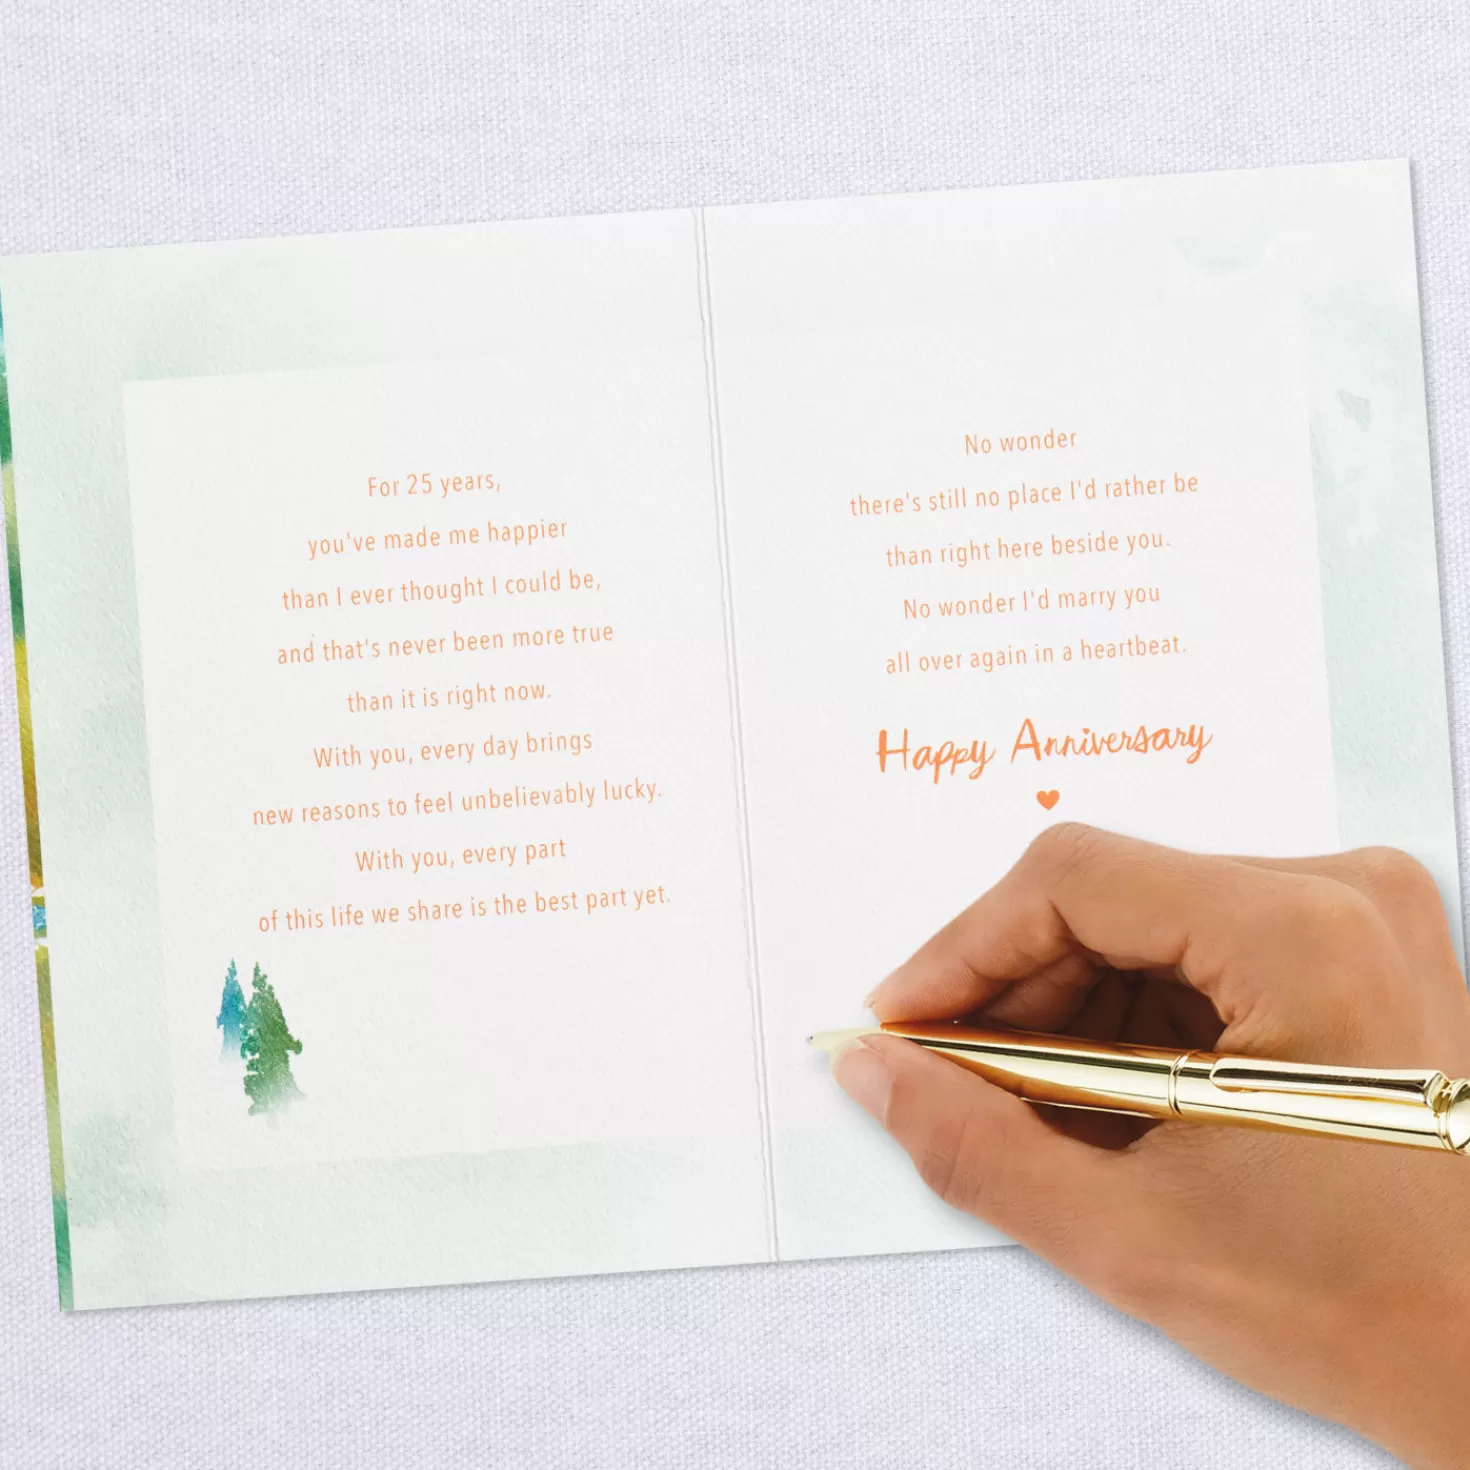 For 25 years,
you've made me happier
than I ever thought I could be,
and that's never been more true
than it is right now.
With you, every day brings
new reasons to feel unbelievably lucky.
With you, every part
of this life we share is the best part yet.
No wonder
there's still no place I'd rather be
than right here beside you.
No wonder I'd marry you
all over again in a heartbeat.
Happy Anniversary